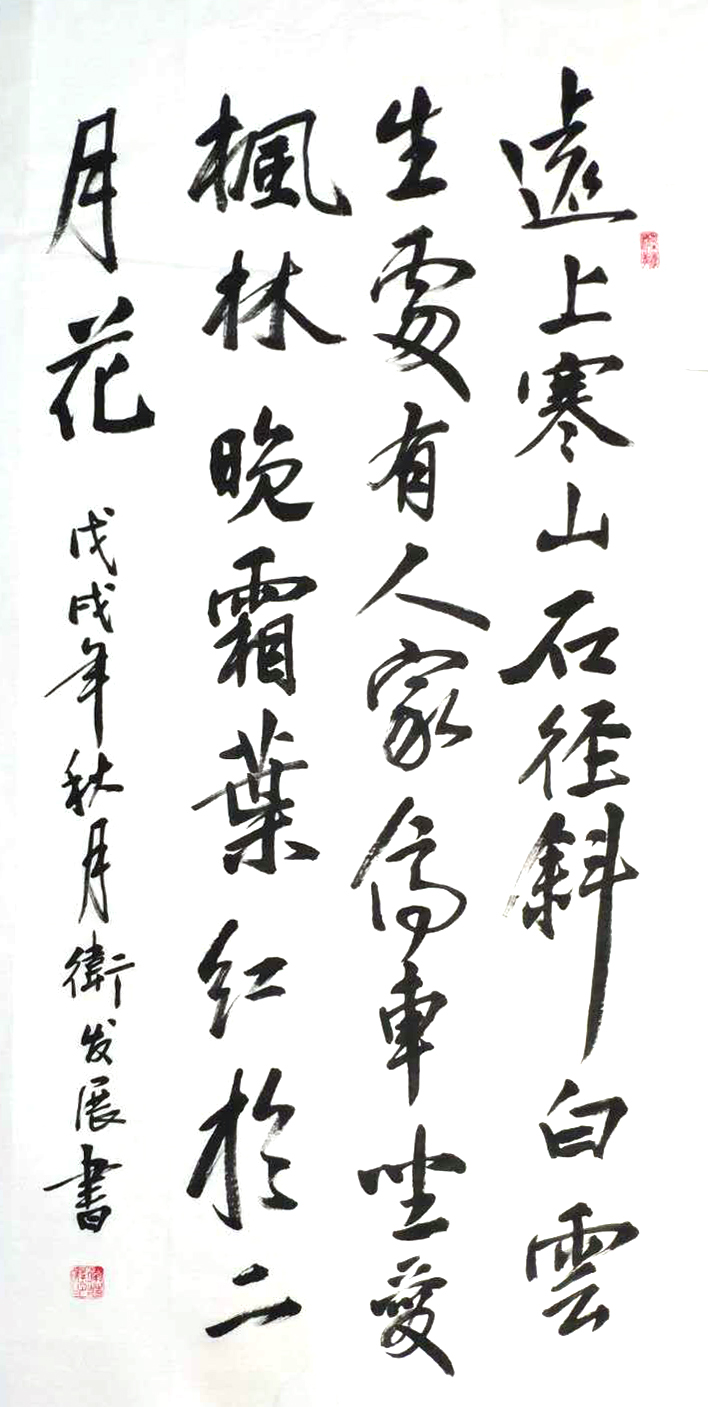 遠上寒山石径斜白雲
生處有人家停車坐愛
楓林晚霜葉红於二
月花
戊戌年秋月衛发展書